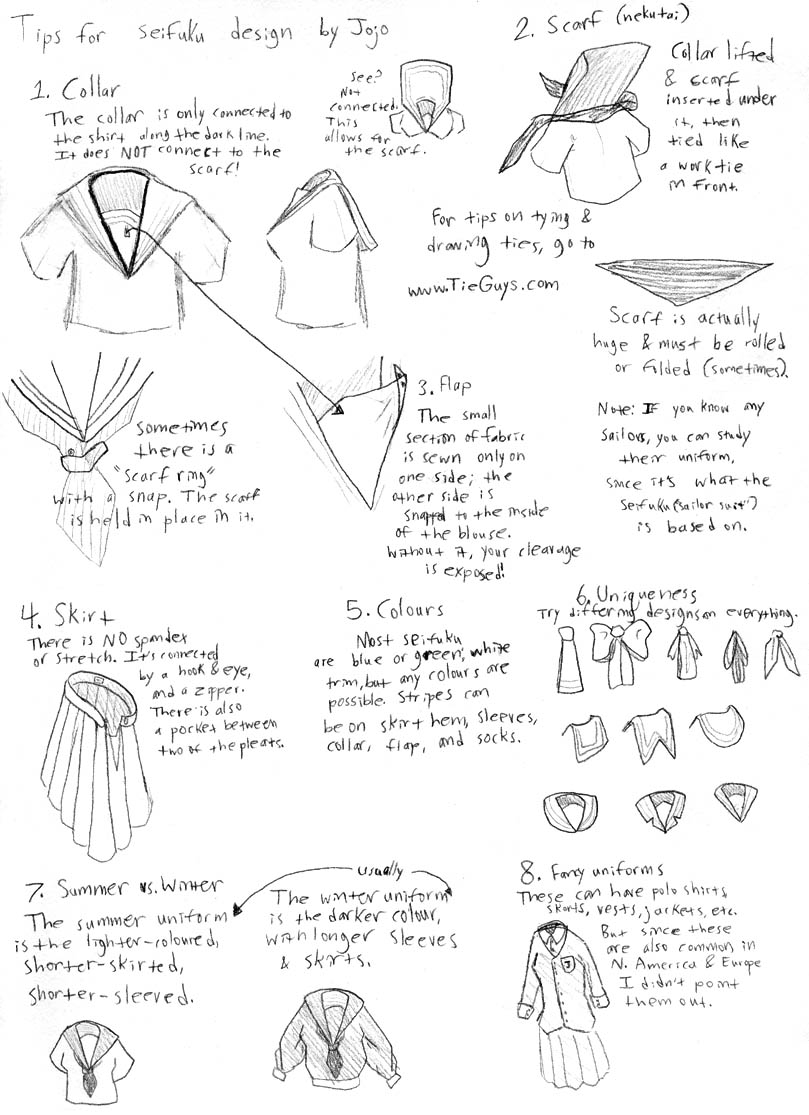 Tips for seifuku design by Jojo
1. Collar
The collar is only connected to
the shirt along the dark line.
It does NOT connect to the
scarf!
See?
Not
connected.
This
allows for
the scarf.
2. Scarf (nekutai)
Collar lifted
& scarf
inserted under
it, then
tied like
a work tie
in front.
For tips on tying &
drawing ties, go to
www.TieGuys.com
Scarf is actually
huge & must be rolled
or folded (sometimes).
Note: If you know any
sailors, you can study
their uniform,
since it's what the
seifuku ("sailor suit")
is based on.
Sometimes
there is a
"scarf ring"
with a snap. The scarf
is held in place in it.
3. Flap
The small
section of fabric
is sewn only on
one side; the
other side is
snapped to the inside
of the blouse.
Without it, your cleavage
is exposed!
4. Skirt
There is NO spandex
or stretch. It's connected
by a hook & eye,
and a zipper.
There is also
a pocket between
two of the pleats.
5. Colours
Most seifuku
are blue or green, white
trim, but any colours are
possible. Stripes can
be on skirt hem, sleeves,
collar, flap, and socks.
6. Uniqueness
Try differing designs on everything.
7. Summer vs. Winter
usually
The summer uniform
is the lighter-coloured,
shorter-skirted,
shorter-sleeved.
The winter uniform
is the darker colour,
with longer sleeves
& skirts.
8. Fancy uniforms
These can have polo shirts,
skorts, vests, jackets, etc.
But since these
are also common in
N. America & Europe
I didn't point
them out.